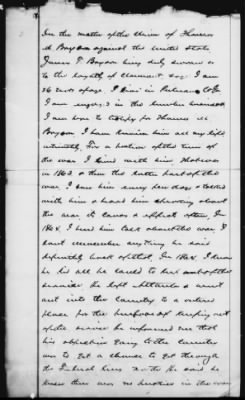 In the matter of the claim of Thomas
M Bryson against the United States
James P. Bryson being duly sworn as
to the loyalty of claimant says I am
36 years of age. I live in
I am engaged in the lumber business
I am here to testify for Thomas M
Bryson I have known him all my life
intimately. For a portion of the time of
the war I lived with him that was
in 1862 & then the latter part of the
war. I saw him every few days & talked
with him & heard him talking about
the war, its causes & effects often. In
1864 I heard him talk about the war I
can't remember anything he said
definitely back of that. In 1864 I know
he did all he could to keep out of the
service he left Atlanta & went
out into the Country to a retired
place for the purpose of keeping out
of the service he informed me that
his object in going to the Country
was to get a chance to get through
the Federal lines & he said he
knew there was no in the war